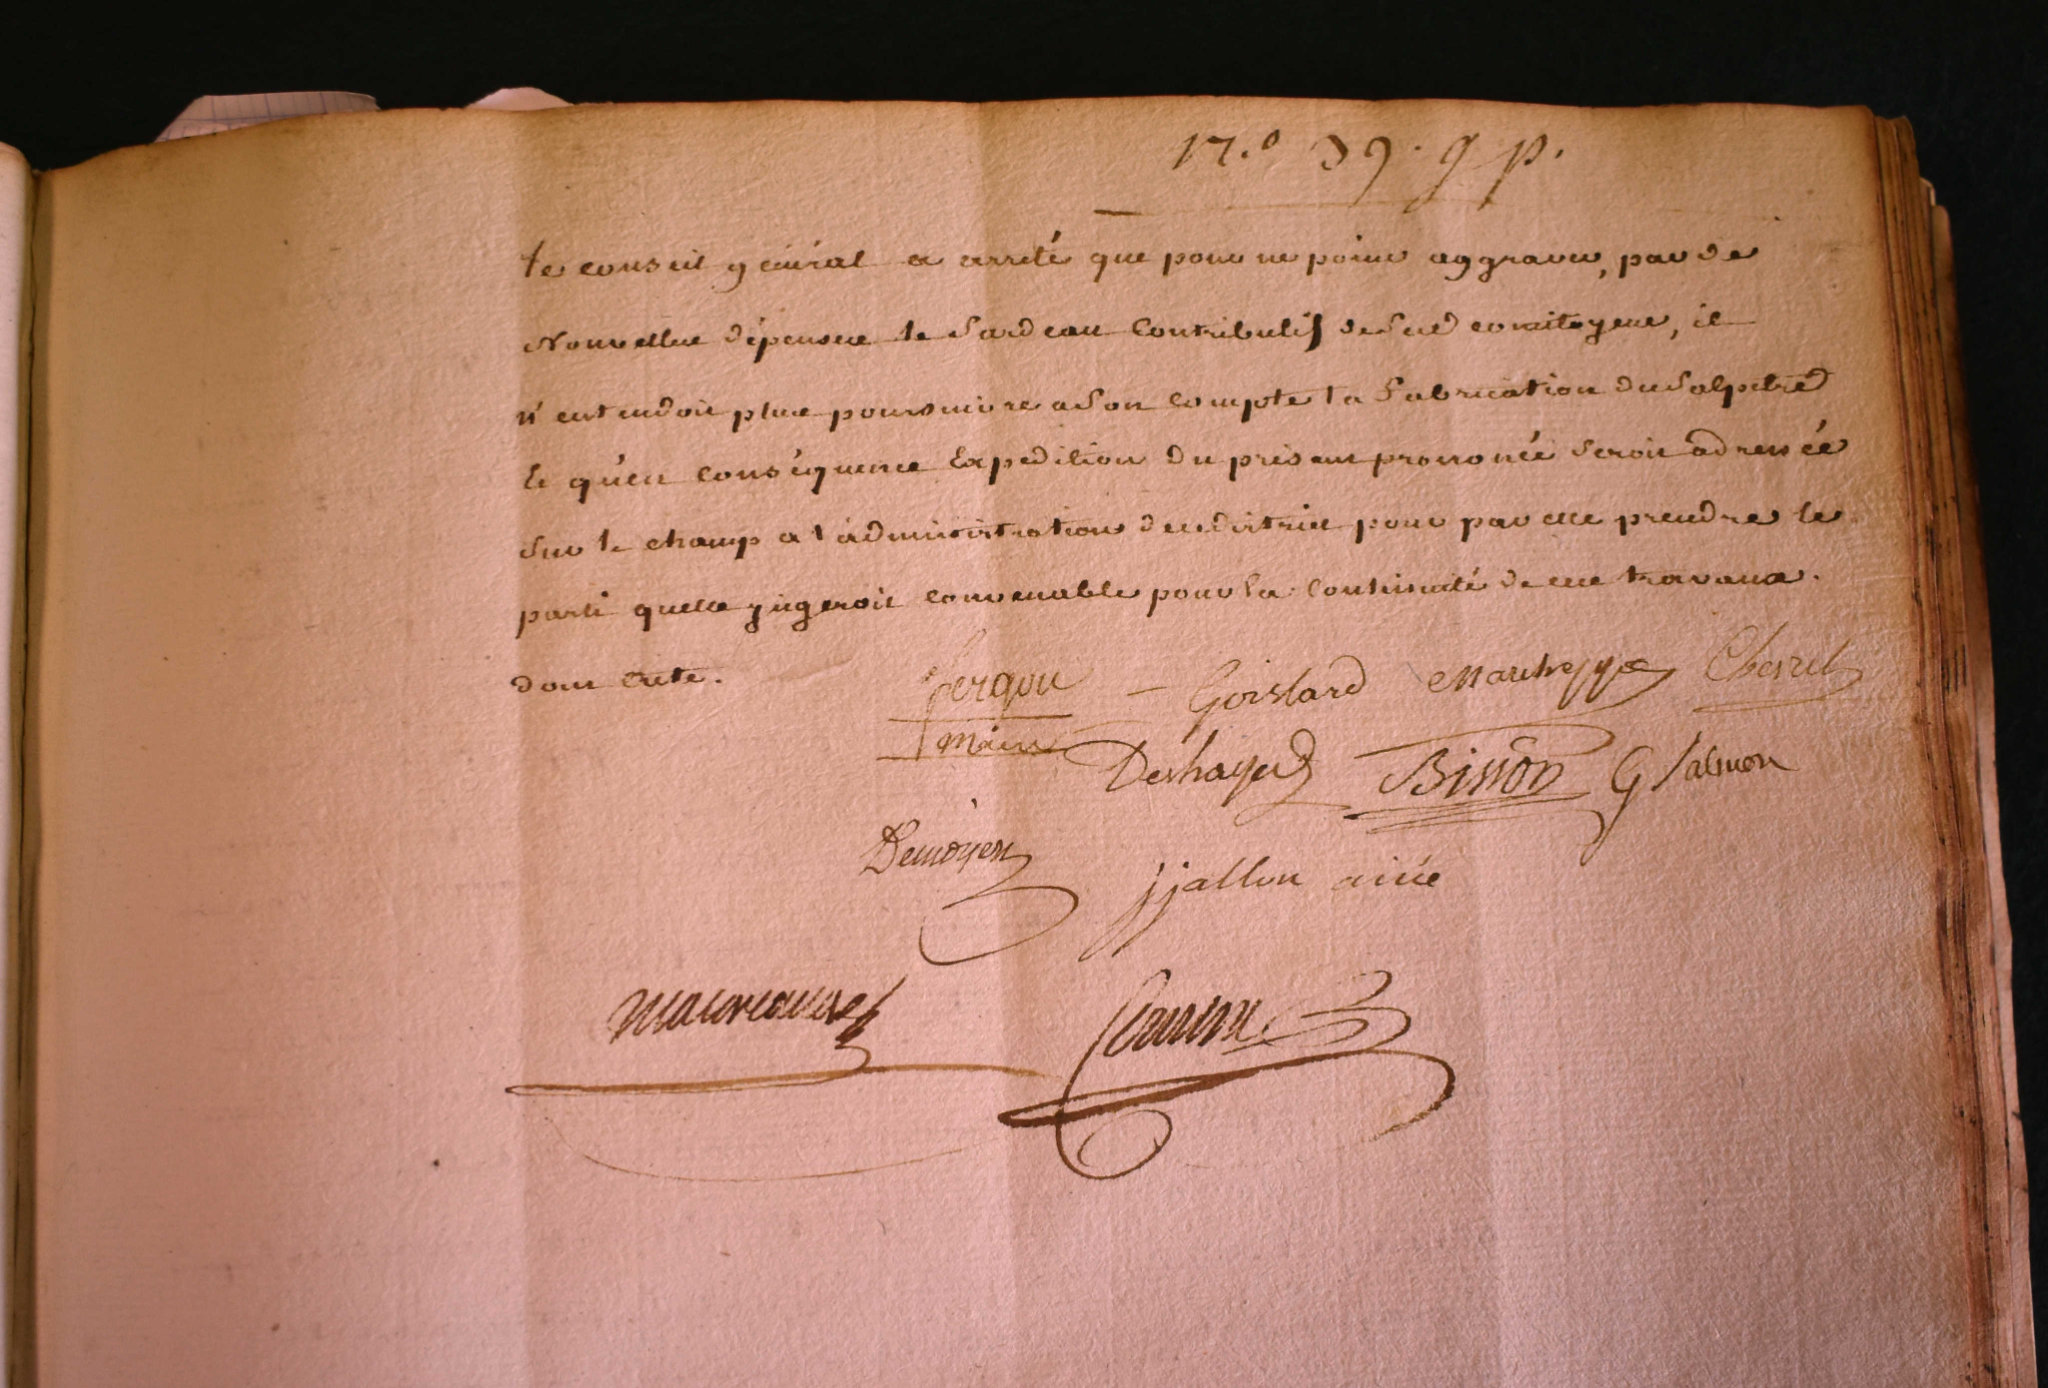 17.º 39. g p.
le conseil général a arrêté que pour ne point aggraver, par de
Nouvelles dépenses le fardeau Contributif de ses concitoyens, il
n'entendoit plus poursuivre a son compte la fabrication du salpetre
Et qu'en conséquence Expedition du présent prononcé seroit adressée
sur le champ a l'administration du district pour par elle prendre le
parti quelle jugeroit convenable pour la Continuité de ces travaux.
dont acte.
Goislard
maire Deshayes Bisson G Salmon
Demoyen
jjallon ainé